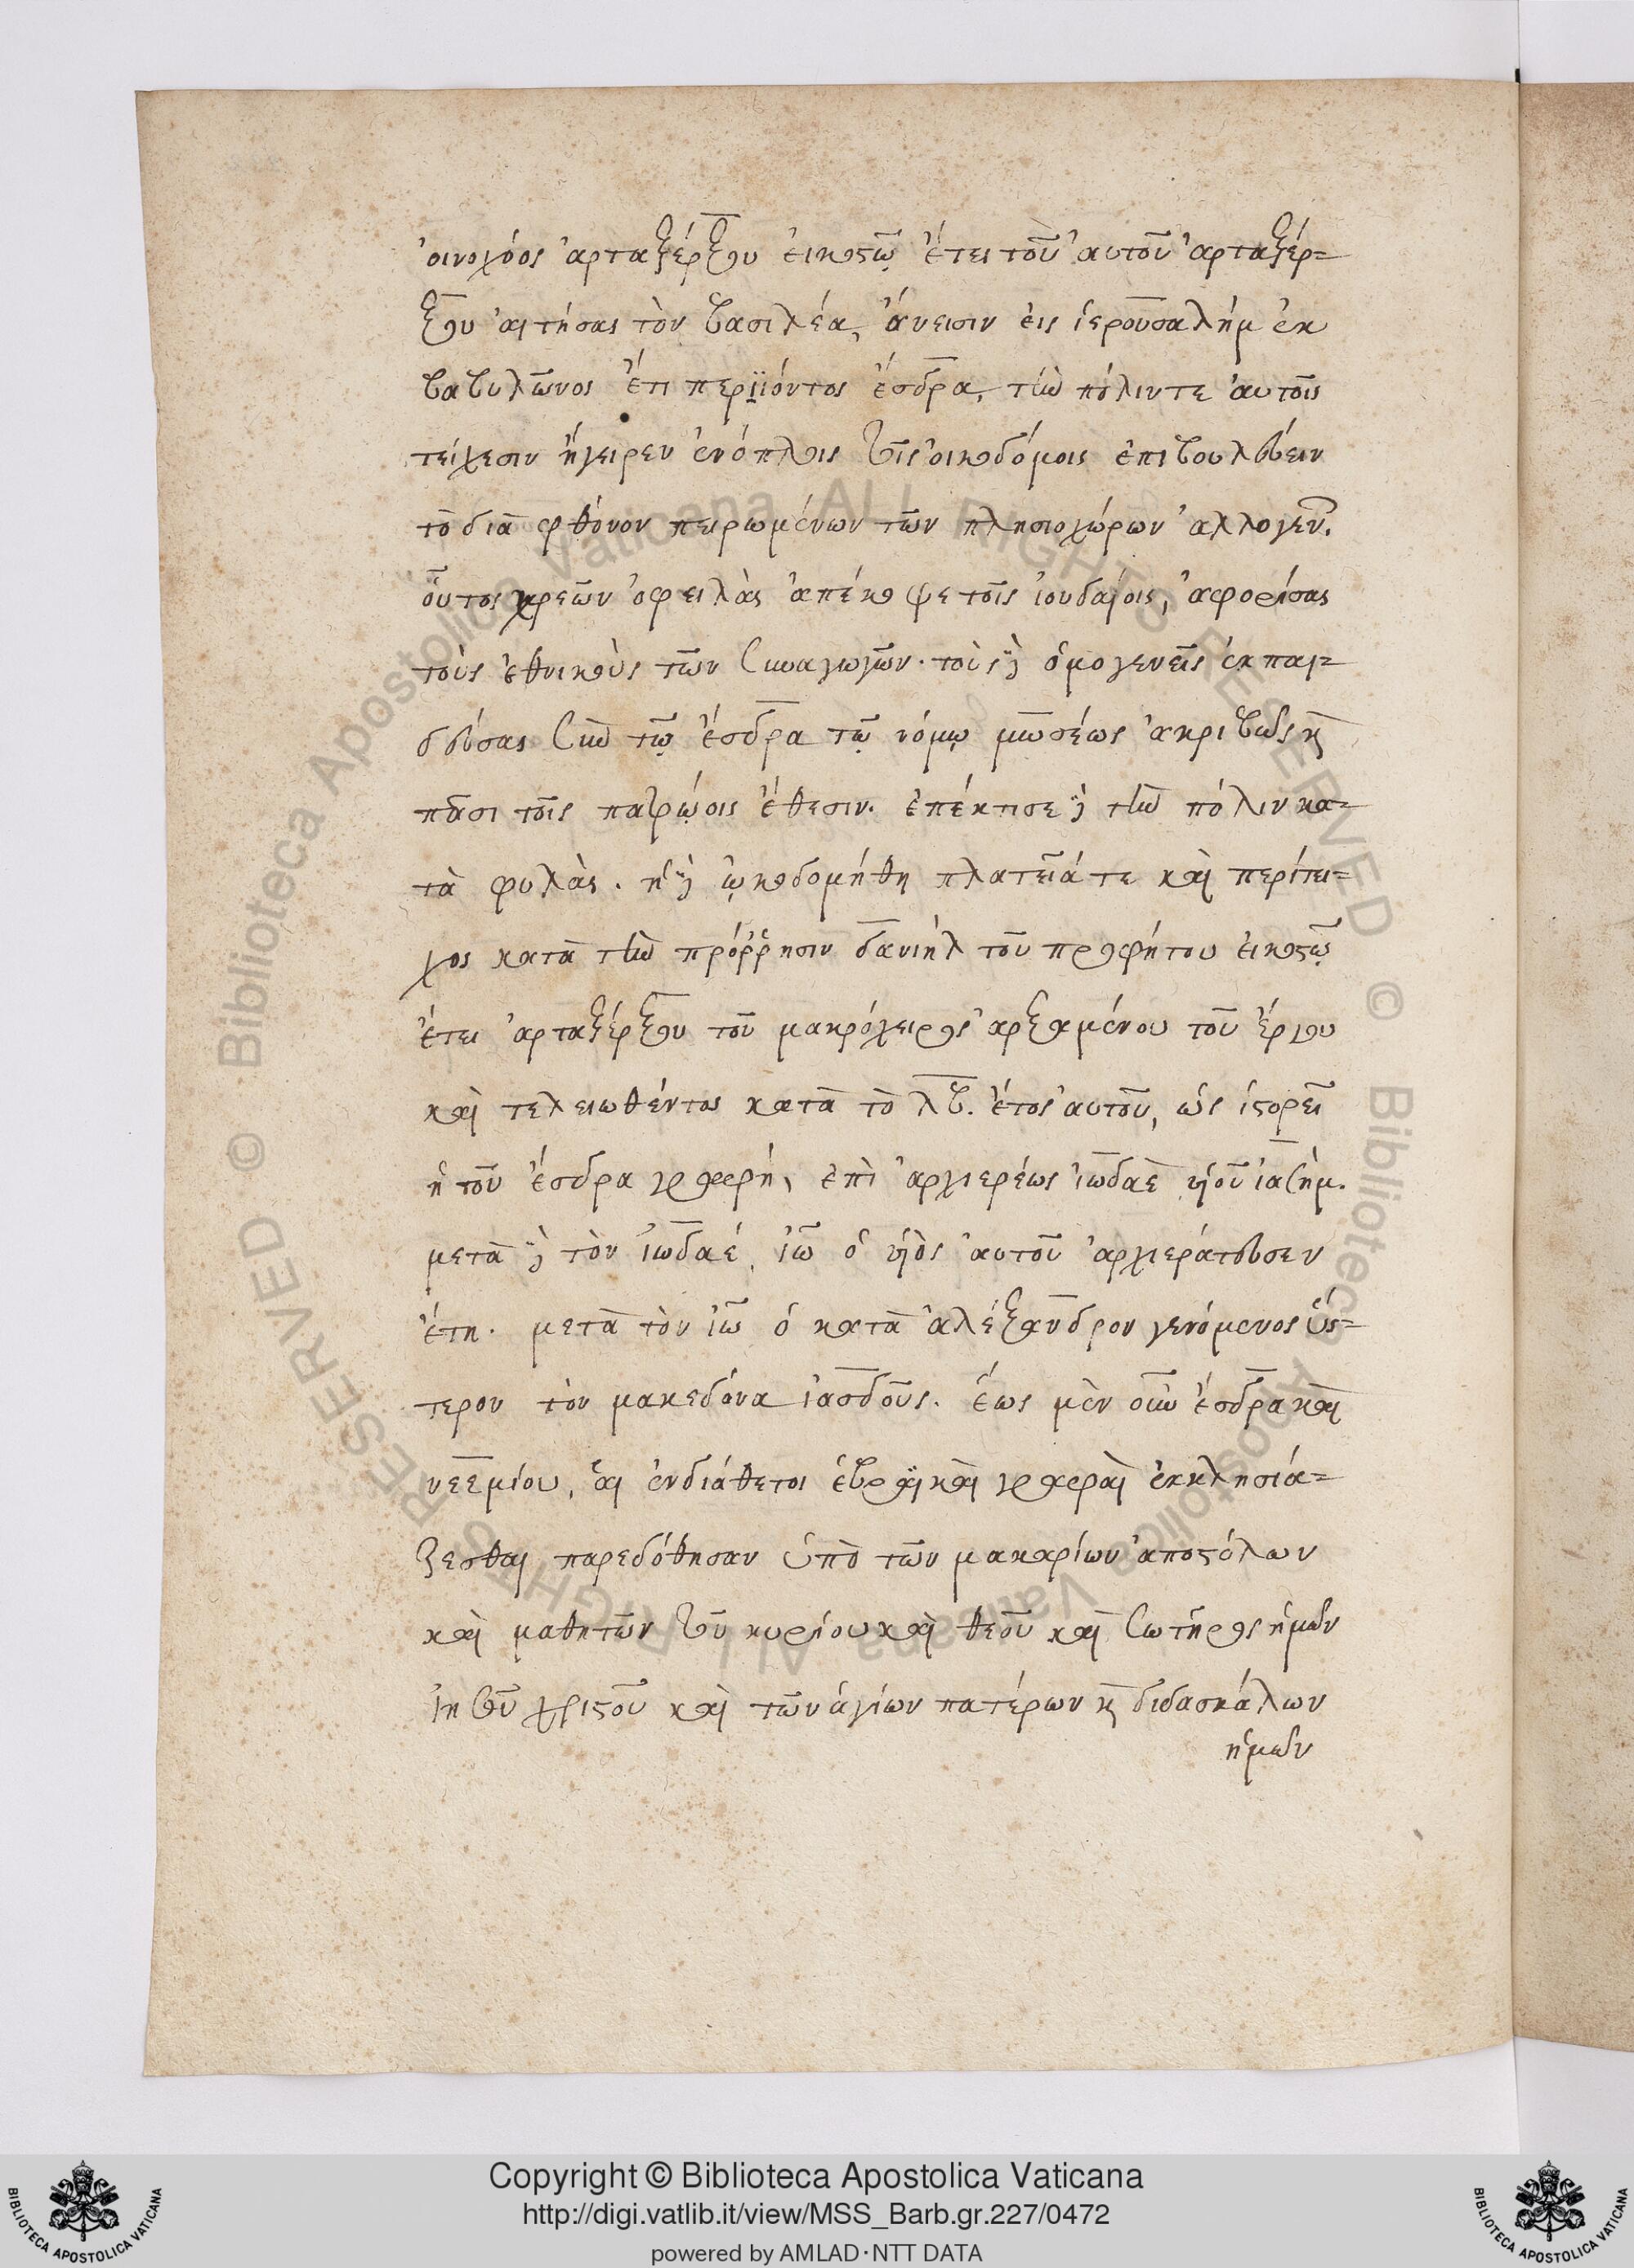 οἰνοχόος ἀρταξέρξου εἰκοστῶ ἔτει τοῦ αὐτοῦ ἀρταξέρ=
ξου αἰτήσας τὸν βασιλέα, ἄνεισιν εἰς ἱερουσαλήμ ἐκ
βαβυλῶνος ἔτι περιϊόντος ἔσδρα, τὴν πόλιν τε αὐτοῖς
τείχεσιν ἤγειρεν ἐνόπλοις τοῖς οἰκοδόμοις ἐπιβουλεύειν
τὸ διὰ φθόνον πειρωμένων τῶν πλησιοχώρων ἀλλογεν.
οὗτος χρεῶν ὀφειλὰς ἀπέκοψε τοῖς ἰουδαίοις, ἀφορίσας
τοὺς ἐθνικοὺς τῶν συναγωγῶν· τοὺς δὲ ὁμογενεῖς ἐκπαι=
δεύσας σὺν τῷ ἔσδρα τῷ νόμῳ μωσέως ἀκριβῶς κ
πᾶσι τοῖς πατρῴοις ἔθεσιν. ἐπέκτισε δὲ τὴν πόλιν κα=
τὰ φυλὰς. ἡ δὲ ᾠκοδομήθη πλατεῖά τε καὶ περίτει=
χος κατὰ τὴν πρόῤῥησιν δανιήλ τοῦ προφήτου εἰκοστῷ
ἔτει ἀρταξέρξου τοῦ μακρόχειρος ἀρξαμένου τοῦ ἔργου
καὶ τελειωθέντος κατὰ τὸ λβ. ἔτος αὐτοῦ, ὡς ἱστορεῖ
ἡ τοῦ ἔσδρα γραφή, ἐπὶ ἀρχιερέως ἰωδαὲ υἱοῦ ἰασήμ.
μετὰ δὲ τὸν ἰωδαέ, ἰω ὁ υἱὸς αὐτοῦ ἀρχιεράτευσεν
ἔτη. μετὰ τὸν ἰω ὁ κατὰ ἀλέξανδρον γενόμενος ὕσ=
τερον τὸν μακεδόνα ἰασδοῦς. ἕως μὲν οὖν ἔσδρα καὶ
νεεμίου, αἱ ἐνδιάθετοι ἑβραϊκαὶ γραφαὶ ἐκκλησιά=
ζεσθαι παρεδόθησαν ὑπὸ τῶν μακαρίων ἀποστόλων
καὶ μαθητῶν τοῦ κυρίου καὶ θεοῦ καὶ σωτῆρος ἡμῶν
ἰησοῦ χριστοῦ καὶ τῶν ἁγίων πατέρων κ διδασκάλων
ἡμῶν
© Biblioteca Apostolica Vaticana ALL RIGHTS RESERVED © Biblioteca Apostolica Vaticana ALL RIGHTS RESERVED
Copyright © Biblioteca Apostolica Vaticana
http://digi.vatlib.it/view/MSS_Barb.gr.227/0472
powered by AMLAD·NTT DATA
BIBLIOTECA APOSTOLICA VATICANA
BIBLIOTECA APOSTOLICA VATICANA